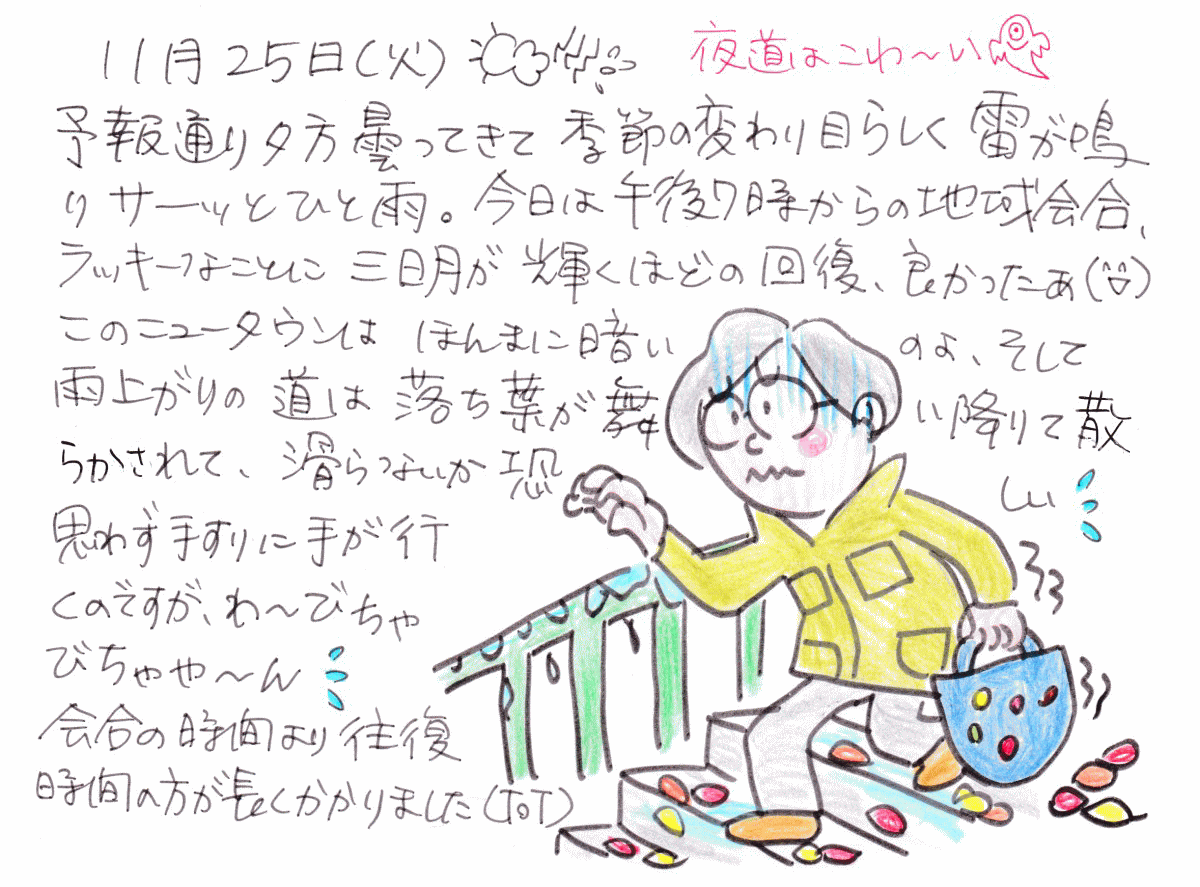 11月25日(火) 夜道はこわ〜い
予報通り夕方曇ってきて 季節の変わり目らしく 雷が鳴
りサーッとひと雨。今日は午後7時からの地域会合、
ラッキーなことに 三日月が 輝くほどの回復、良かったぁ(^^)
このニュータウンは ほんまに暗い のよ、そして
雨上がりの 道は 落ち葉が舞 い降りて散
らかされて、滑らないか恐 しい
思わず手すりに手が行
くのですが、わ〜びちゃ
びちゃや〜ん
会合の時間より往復
時間の方が長くかかりました(ToT)